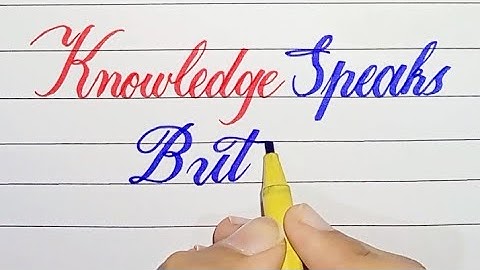 Knowledge Speaks
But